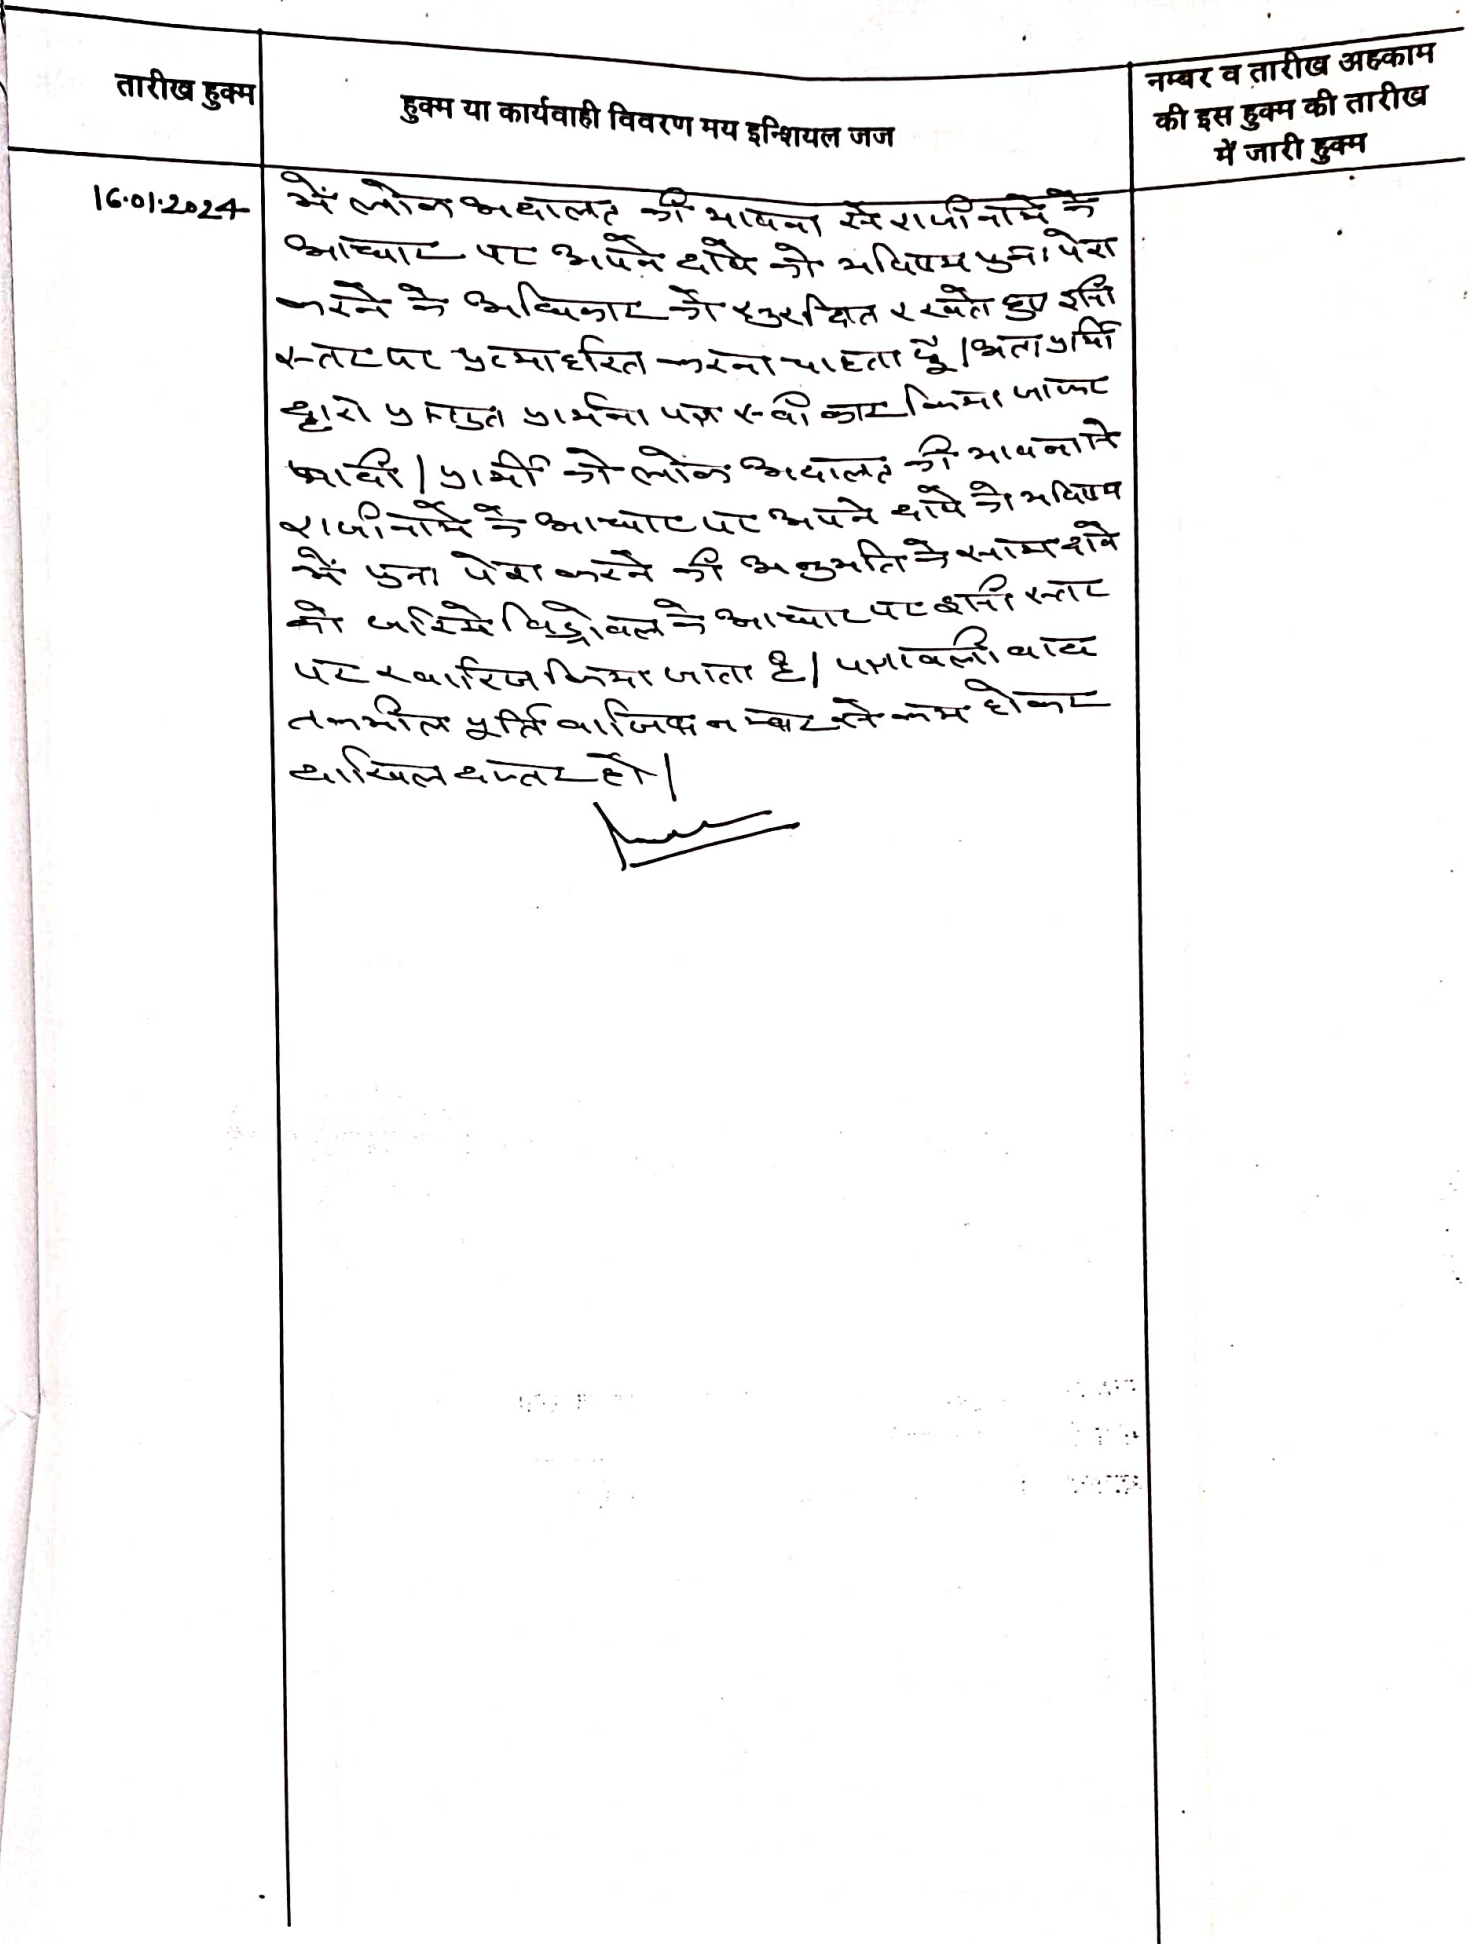 तारीख हुक्म
हुक्म या कार्यवाही विवरण मय इन्शियल जज
नम्बर व तारीख अहकाम
की इस हुक्म की तारीख
में जारी हुक्म
16.01.2024
में लोक अदालत की भावना से राजीनामे के
आधार पर अपने दावे को भविष्य पुनः पेश
करने के अधिकार को सुरक्षित रखते हुए इसी
स्तर पर प्रत्याहरित करना चाहता हूँ। अतः प्रार्थी
द्वारा प्रस्तुत प्रार्थना पत्र स्वीकार किया जाकर
प्रार्थी को लोक अदालत की भावना से
राजीनामे के आधार पर अपने दावे को भविष्य
में पुनः पेश करने की अनुमति के साथ दावे
को जरिये विड्रोवल के आधार पर इसी स्तर
पर खारिज किया जाता है। पत्रावली बाद
तकमील पूर्ति नम्बर से कम होकर
दाखिल दफ्तर हो।